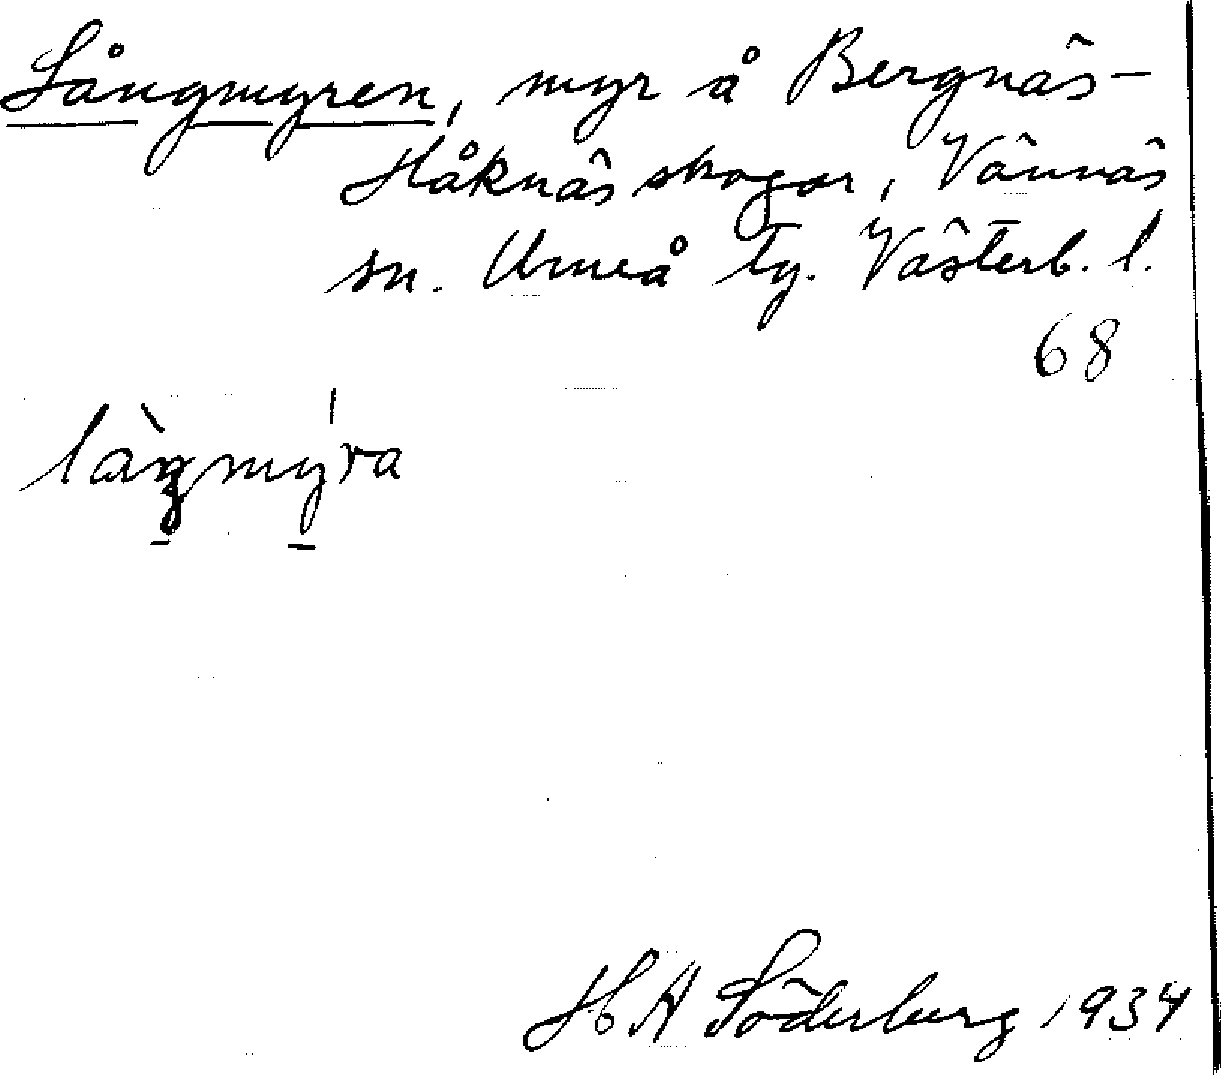 Långmyren, myr å Bergnäs-
Håknäs skogar, Vännäs
sn. Umeå tg. Västerb. l.
68
làŋmy̍ra
H A Söderberg 1934